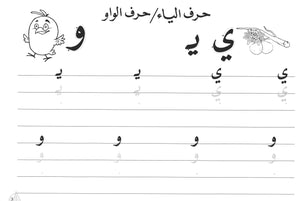 حرف الياء/حرف الواو
ي يـ و
ي ي يـ يـ
ي ي يـ يـ
و و و و
و و و و